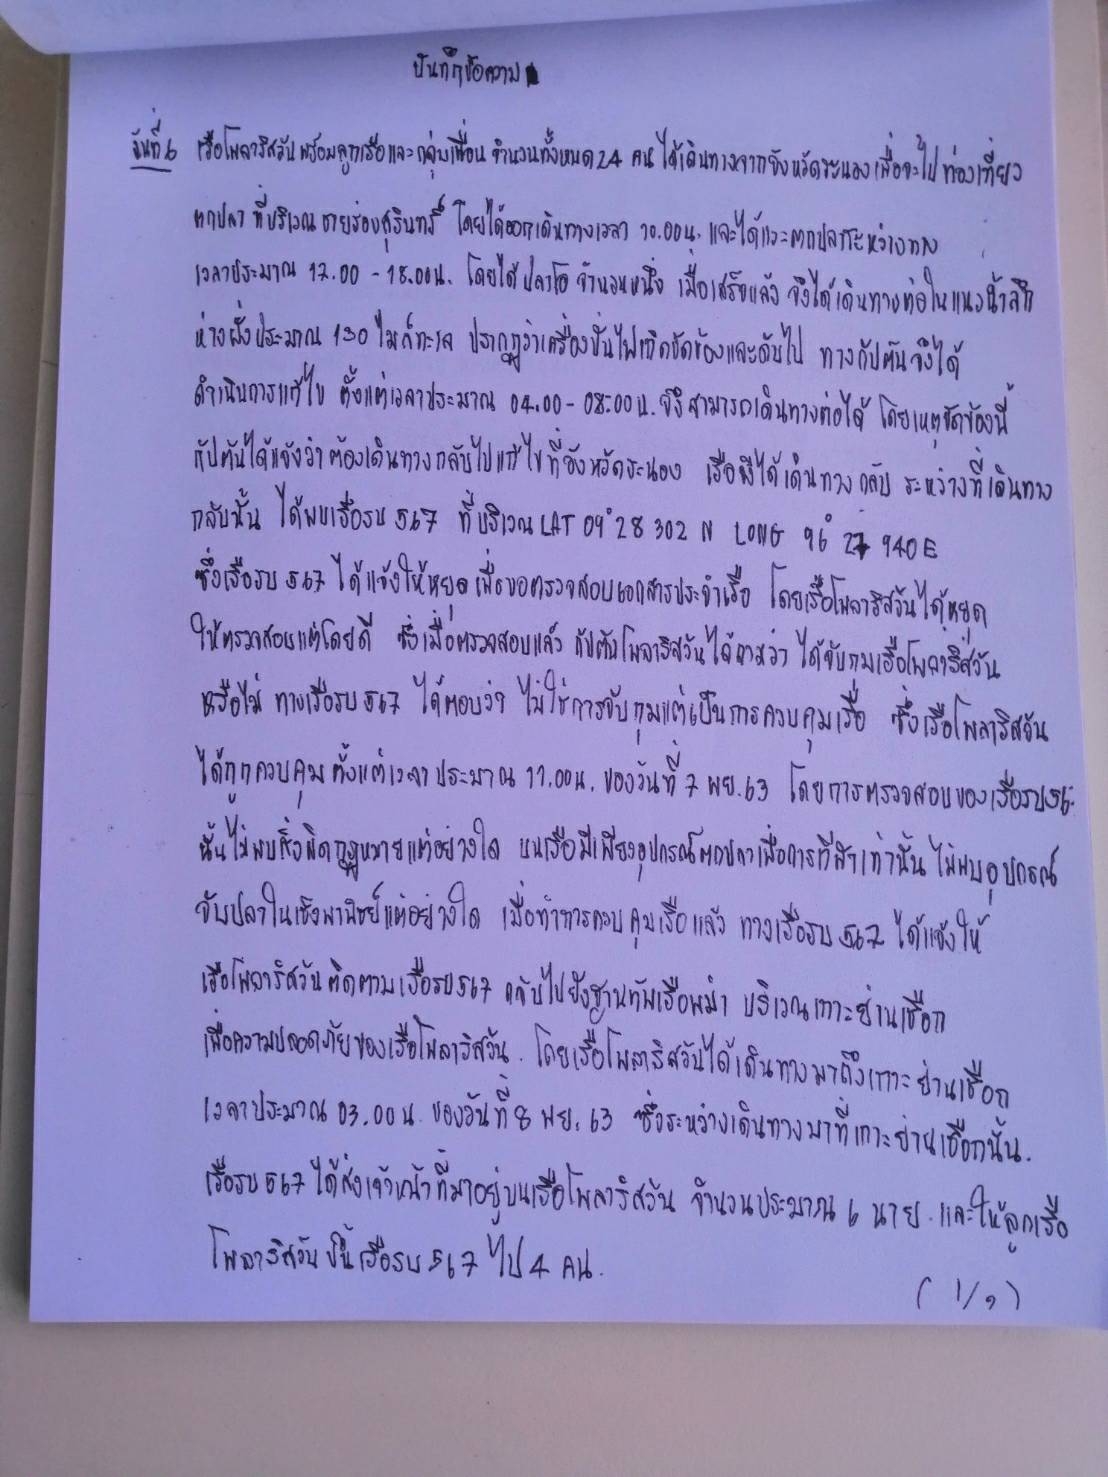 บันทึกข้อความ
วันที่ 6 เรือโพลาริสวันพร้อมลูกเรือและกลุ่มเพื่อน จำนวนทั้งหมด 24 คน ได้เดินทางจากจังหวัดระนองเพื่อจะไปท่องเที่ยว
ตกปลา ที่บริเวณชายร่องสุรินทร์ โดยได้ออกเดินทางเวลา 10.00น. และได้แวะตกปลาระหว่างทาง
เวลาประมาณ 17.00 - 18.00น. โดยได้ปลาโอ จำนวนหนึ่ง เมื่อเสร็จแล้ว จึงได้เดินทางต่อในแนวน้ำลึก
ห่างฝั่งประมาณ 130 ไมล์ทะเล ปรากฏว่าเครื่องปั่นไฟเกิดขัดข้องและดับไป ทางกัปตันจึงได้
ดำเนินการแก้ไข ตั้งแต่เวลาประมาณ 04.00 - 08.00น. จึงสามารถเดินทางต่อได้ โดยเหตุขัดข้องนี้
กัปตันได้แจ้งว่าต้องเดินทางกลับไปแก้ไขที่จังหวัดระนอง เรือจึงได้เดินทางกลับ ระหว่างที่เดินทาง
กลับนั้น ได้พบเรือรบ 567 ที่บริเวณ LAT 09° 28 302 N LONG 96° 27 940 E
ซึ่งเรือรบ 567 ได้แจ้งให้หยุด เพื่อขอตรวจสอบเอกสารประจำเรือ โดยเรือโพลาริสวันได้หยุด
ให้ตรวจสอบแต่โดยดี ซึ่งเมื่อตรวจสอบแล้ว กัปตันโพลาริสวันได้ถามว่า ได้จับกุมเรือโพลาริสวัน
หรือไม่ ทางเรือรบ 567 ได้ตอบว่า ไม่ใช่การจับกุมแต่เป็นการควบคุมเรือ ซึ่งเรือโพลาริสวัน
ได้ถูกควบคุม ตั้งแต่เวลาประมาณ 11.00น. ของวันที่ 7 พย.63 โดยการตรวจสอบของเรือรบ 56
นั้นไม่พบสิ่งผิดกฎหมายแต่อย่างใด บนเรือมีเพียงอุปกรณ์ตกปลาเพื่อการกีฬาเท่านั้น ไม่พบอุปกรณ์
จับปลาในเชิงพานิชย์แต่อย่างใด เมื่อทำการควบคุมเรือแล้ว ทางเรือรบ 567 ได้แจ้งให้
เรือโพลาริสวันติดตามเรือรบ 567 กลับไปยังฐานทัพเรือพม่า บริเวณเกาะย่านเชือก
เพื่อความปลอดภัยของเรือโพลาริสวัน. โดยเรือโพลาริสวันได้เดินทางมาถึงเกาะย่านเชือก
เวลาประมาณ 03.00น. ของวันที่ 8 พย. 63 ซึ่งระหว่างเดินทางมาที่เกาะย่านเชือกนั้น.
เรือรบ 567 ได้ส่งเจ้าหน้าที่มาอยู่บนเรือโพลาริสวัน จำนวนประมาณ 6 นาย. และให้ลูกเรือ
โพลาริสวัน ขึ้นเรือรบ 567 ไป 4 คน.